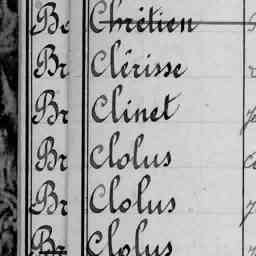 Be Chrétien
Br Clérisse
Br Clinet
Br Clolus
Br Clolus
Br Clolus